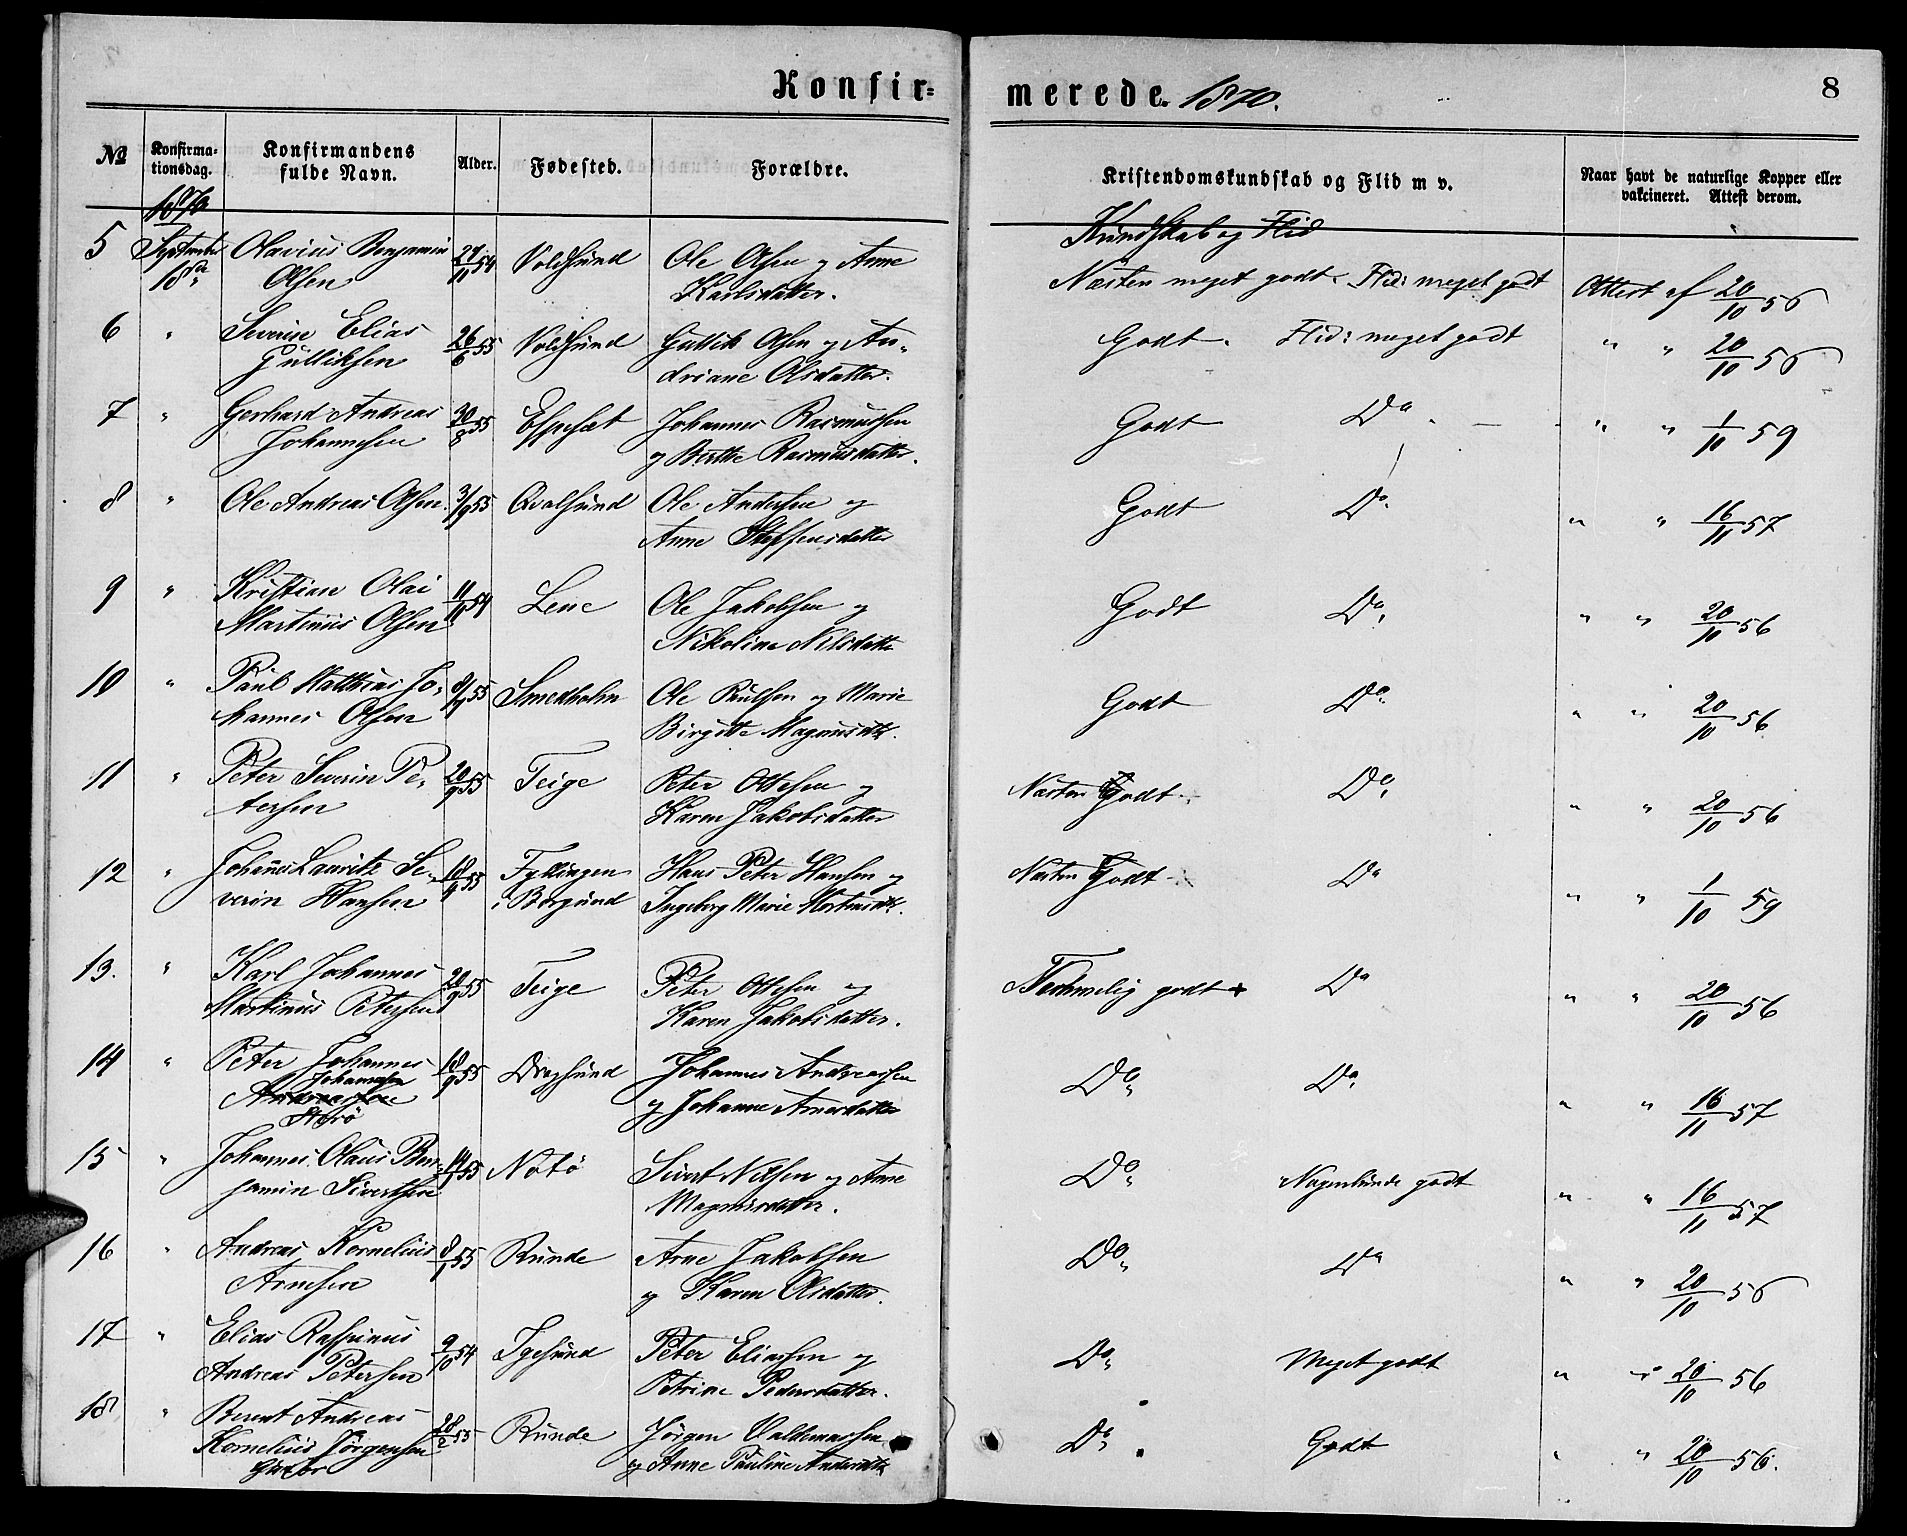 Konfir=
merede. 1870.
8
No
Konfirma-
tionsdag.
Konfirmandens
fulde Navn.
Alder.
Fødested.
Forældre.
Kristendomskundskab og Flid m v.
Naar havt de naturlige Kopper eller
vakcineret. Attest derom.
1870
Kundskab og Flid
5 September Olavius Benjamin 27/11 54 Voldsund Ole Olsen og Anne Næsten meget godt. Flid: meget godt Attest af 20/10 56
18de Olsen Karlsdatter.
6 " Severin Elias 26/6 55 Voldsund Gullik Olsen og An- Godt. Flid: meget godt " " 20/10 56
Gulliksen driane Olsdatter.
7 " Gerhard Andreas 30/8 55 Espeset Johannes Rasmussen Godt Do " " 1/10 59
Johannesen og Berthe Rasmusdatter.
8 " Ole Andreas Olsen 3/9 55 Qvalsund Ole Andersen og Godt Do " " 16/11 57
Anne Steffensdatter
9 " Kristian Olai 11/11 54 Lene Ole Jakobsen og Godt Do " " 20/10 56
Martinus Olsen Nikoline Nilsdatter
10 " Paul Matthias Jo- 55 Smedholm Ole Paulsen og Marie Godt Do " " 20/10 56
hannes Olsen Birgitte Magnusdtr.
11 " Peter Severin Pe- 20/9 55 Teige Peter Ottesen og Næsten Godt Do " " 20/10 56
tersen Karen Jakobsdatter
12 " Johannes Lauritz Se- 55 Fyllingen Hans Peter Hansen og Næsten Godt Do " " 1/10 59
verin Hansen i Borgund Ingeborg Marie Mortensdtr.
13. " Karl Johannes 20/9 55 Teige Peter Ottesen og Temmelig godt Do " " 20/10 56
Martinus Petersen Karen Jakobsdatter.
14 " Peter Johannes 18/9 55 Dragsund Johannes Andreassen Do Do " " 16/11 57
Johannesen
Andreassen og Johanne Arnesdatter
15 " Johannes Olaus Ben- 55 Notø Sivert Nilsen og Anne Do Nogenlunde godt " " 16/11 57
jamin Sivertsen Magnusdatter.
16 " Andreas Kornelius 8/1 55 Runde Arne Jakobsen Do Do " " 20/10 56
Arnesen og Karen Olsdatter.
17 " Elias Rasmus 9/10 54 Igesund Peter Eliassen og Do Meget godt " " 20/10 56
Andreas Petersen Petrine Pedersdatter.
18 " Berent Andreas 28/2 55 Runde Jørgen Valdemarsen Do Godt " " 20/10 56.
Kornelius Jørgensen og Anne Pauline Andersdtr